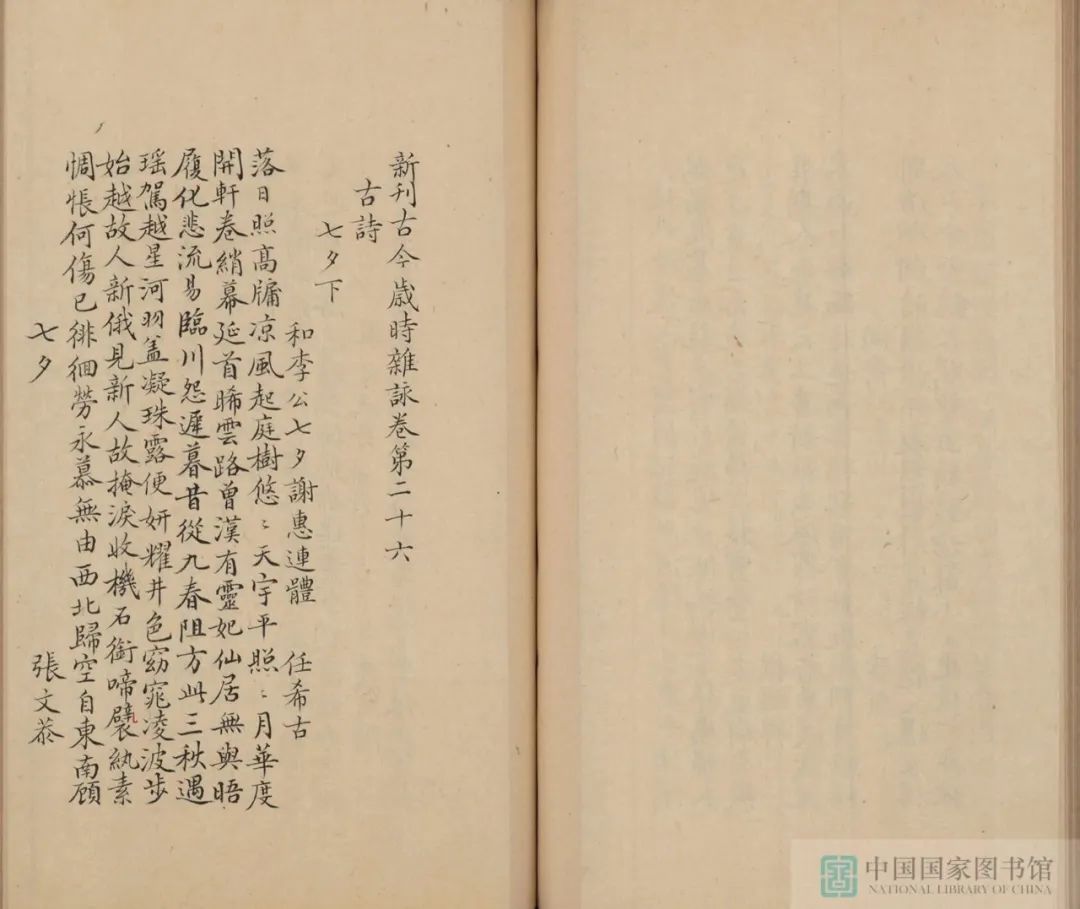 新刊古今歳時雜詠卷第二十六
古詩
七夕下
和李公七夕謝惠連體 任希古
落日照高牖凉風起庭樹悠〻天宇平照〻月華度
開軒卷綃幕延首晞雲路曾漢有靈妃仙居無與晤
履化悲流易臨川怨遲暮昔從九春阻方此三秋遇
瑶駕越星河羽盖凝珠露便妍耀井色窈窕凌波步
始越故人新俄見新人故掩淚收機石銜啼襞紈素
惆悵何傷已徘徊勞永慕無由西北歸空自東南顧
七夕 張文恭
中国国家图书馆
NATIONAL LIBRARY OF CHINA